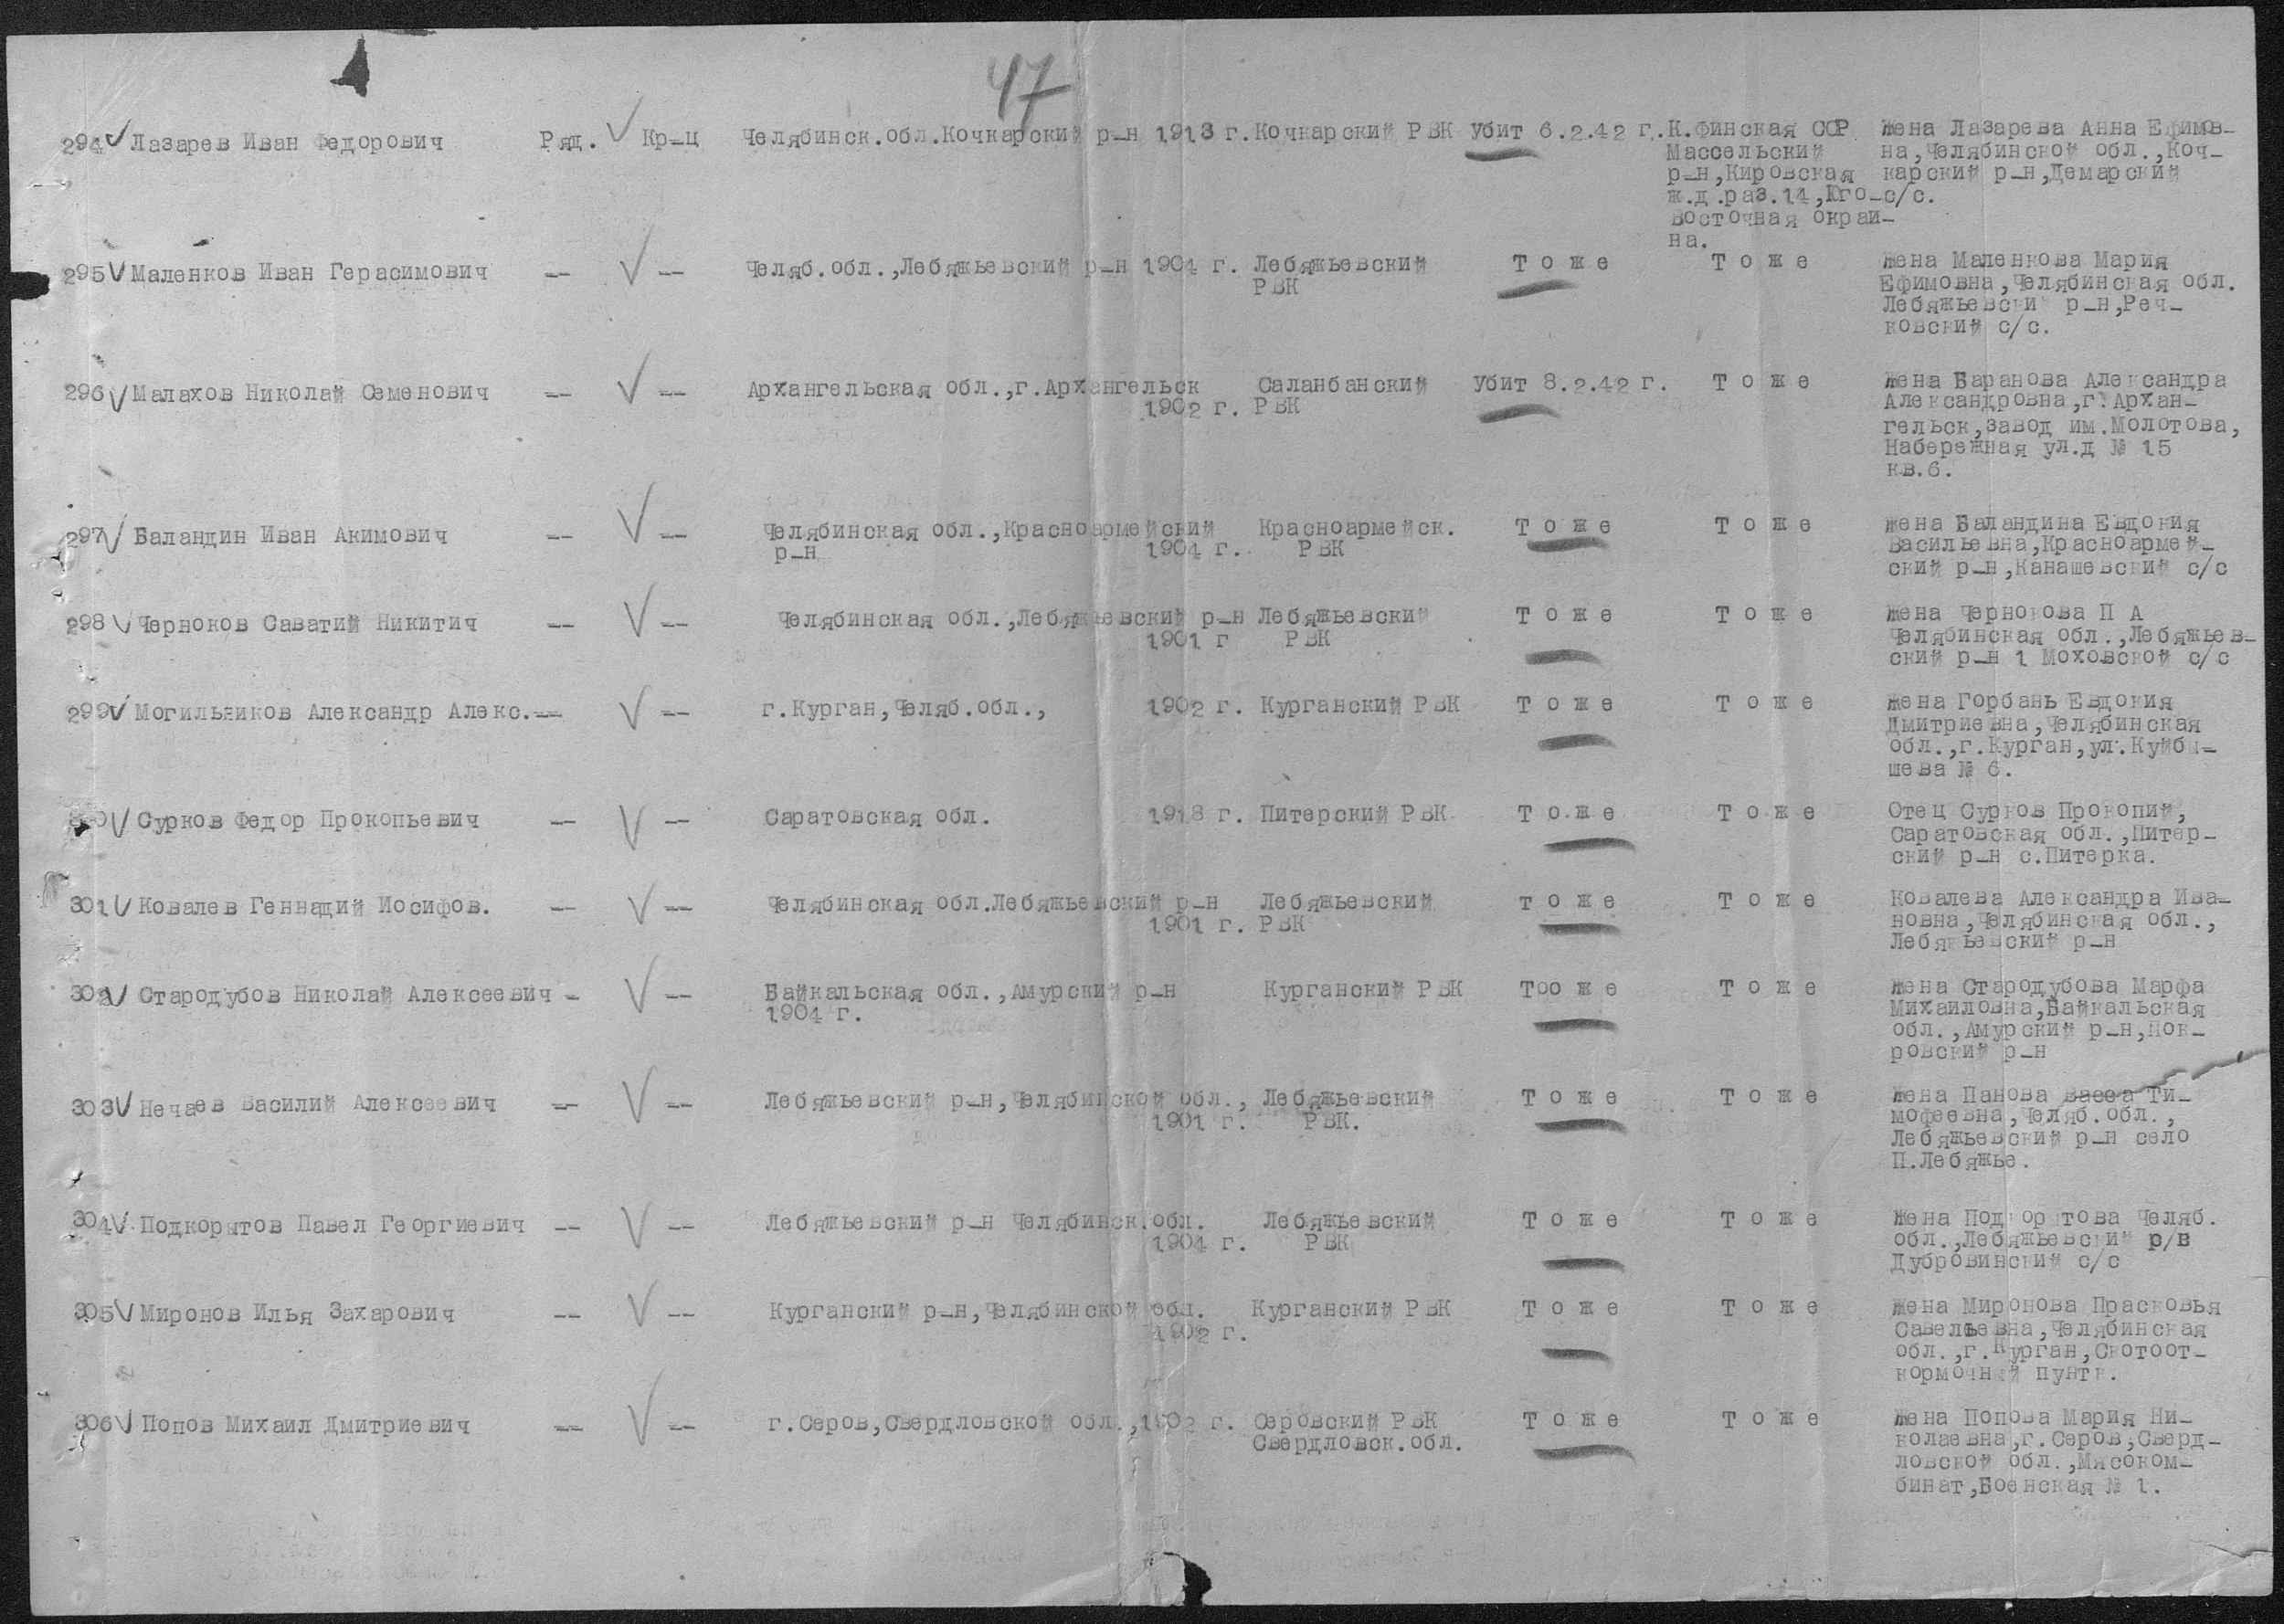 47
294 Лазарев Иван Федорович Ряд. Кр-ц Челябинск.обл.Кочкарский р-н 1913 г. Кочкарский РВК Убит 6.2.42 г. К.Финская ССР Жена Лазарева Анна Ефимов-
Массельский на,Челябинской обл.,Коч-
р-н,Кировская карский р-н,Демарский
ж.д.раз.14,Юго- с/с.
Восточная окраи-
на.
295 Маленков Иван Герасимович -- -- Челяб.обл.,Лебяжьевский р-н 1904 г. Лебяжьевский Тоже Тоже Жена Маленкова Мария
РВК Ефимовна,Челябинская обл.
Лебяжьевский р-н,Реч-
ковский с/с.
296 Малахов Николай Семенович -- -- Архангельская обл.,г.Архангельск Саланбанский Убит 8.2.42 г. Тоже Жена Баранова Александра
1902 г. РВК Александровна,г.Архан-
гельск,завод им.Молотова,
Набережная ул.д № 15
кв.6.
297 Баландин Иван Акимович -- -- Челябинская обл.,Красноармейский Красноармейск. Тоже Тоже Жена Баландина Евдокия
р-н 1904 г. РВК Васильевна,Красноармей-
ский р-н,Канашевский с/с
298 Черноков Саватий Никитич -- -- Челябинская обл.,Лебяжьевский р-н Лебяжьевский Тоже Тоже Жена Чернокова П А
1901 г РВК Челябинская обл.,Лебяжьев-
ский р-н 1 Моховской с/с
299 Могильников Александр Алекс.-- -- г.Курган,Челяб.обл., 1902 г. Курганский РВК Тоже Тоже Жена Горбань Евдокия
Дмитриевна,Челябинская
обл.,г.Курган,ул.Куйбы-
шева № 6.
300 Сурков Федор Прокопьевич -- -- Саратовская обл. 1918 г. Питерский РВК Тоже Тоже Отец Сурков Прокопий,
Саратовская обл.,Питер-
ский р-н с.Питерка.
301 Ковалев Геннадий Иосифов. -- -- Челябинская обл.Лебяжьевский р-н Лебяжьевский Тоже Тоже Ковалева Александра Ива-
1901 г. РВК новна,Челябинская обл.,
Лебяжьевский р-н
302 Стародубов Николай Алексеевич - -- Байкальская обл.,Амурский р-н Курганский РВК Тоо же Тоже Жена Стародубова Марфа
1904 г. Михаиловна,Байкальская
обл.,Амурский р-н,Пок-
ровский р-н
303 Нечаев Василий Алексеевич -- -- Лебяжьевский р-н,Челябинской обл., Лебяжьевский Тоже Тоже Жена Панова Васса Ти-
1901 г. РВК. мофеевна,Челяб.обл.,
Лебяжьевский р-н село
П.Лебяжье.
304 Подкорытов Павел Георгиевич -- -- Лебяжьевский р-н Челябинск.обл. Лебяжьевский Тоже Тоже Жена Подкорытова Челяб.
1904 г. РВК обл.,Лебяжьевский р/в
Дубровинский с/с
305 Миронов Илья Захарович -- -- Курганский р-н,Челябинской обл. Курганский РВК Тоже Тоже Жена Миронова Прасковья
1902 г. Савельевна,Челябинская
обл.,г.Курган,Скотоот-
кормочный пункт.
306 Попов Михаил Дмитриевич -- -- г.Серов,Свердловской обл.,1902 г. Серовский РВК Тоже Тоже Жена Попова Мария Ни-
Свердловск.обл. колаевна,г.Серов,Сверд-
ловской обл.,Мясоком-
бинат,Боенская № 1.